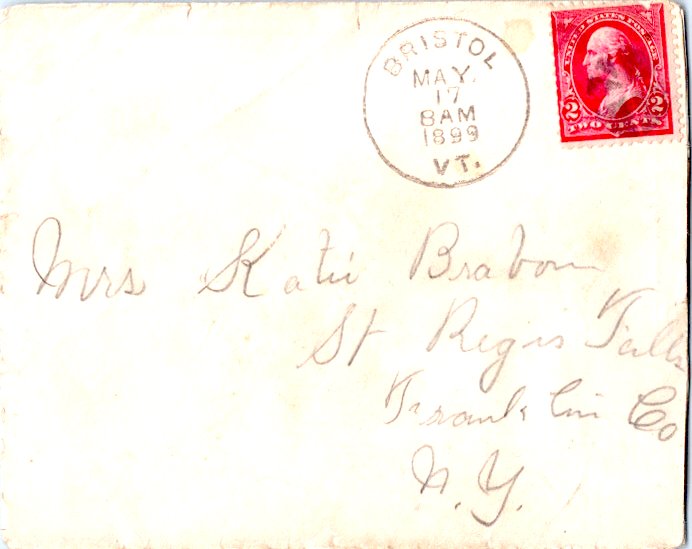 BRISTOL
MAY.
17
8AM
1899
VT.
UNITED STATES POSTAGE
2 2
TWO CENTS
Mrs Katie Brabon
St Regis Falls
Franklin Co
N.Y.